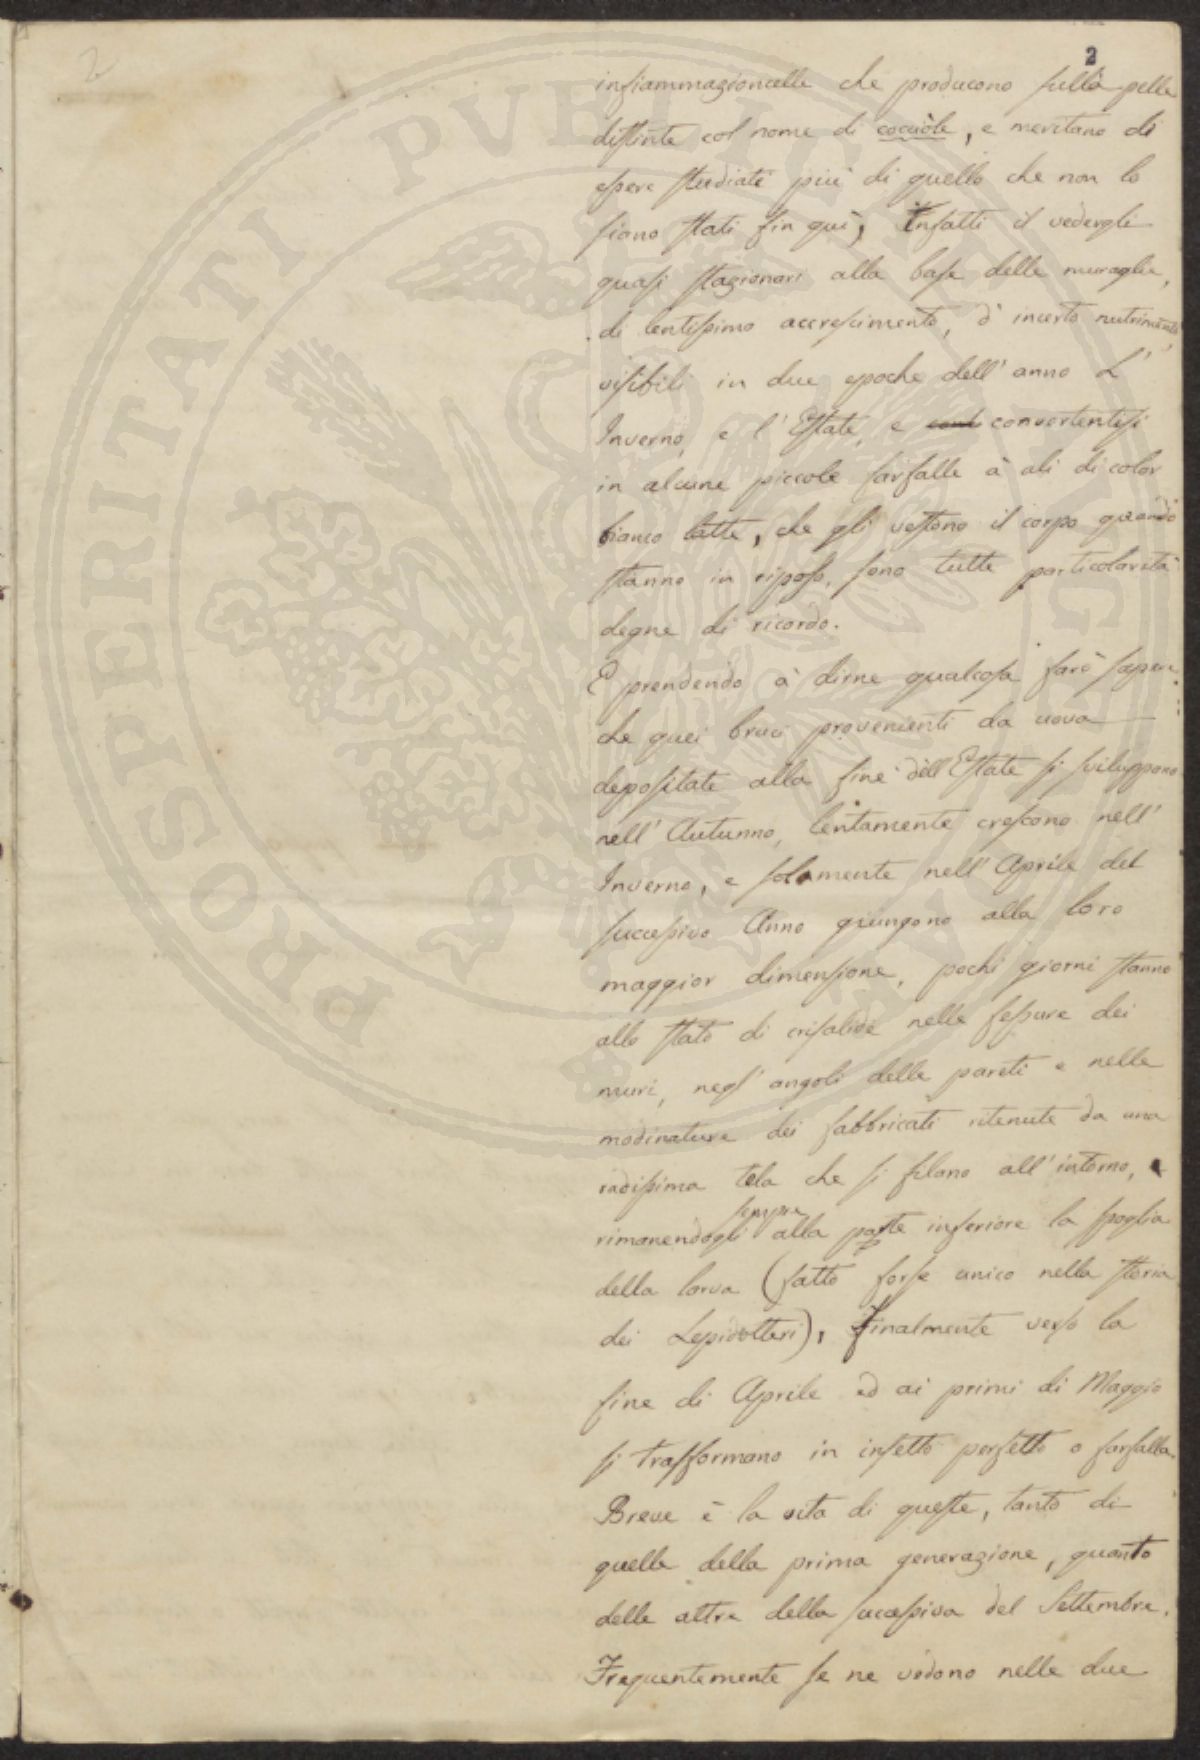 2
2
infiammazioncelle che producono sulla pelle
distinte col nome di cocciole, e meritano di
essere studiati più di quello che non lo
siano stati fin quì, Infatti il vedergli
quasi stazionari alla base delle muraglie,
di lentissimo accrescimento, d' incerto nutrimento,
visibili in due epoche dell' anno L'
Inverno, e l' Estate, e convertentisi
in alcune piccole farfalle à ali di color
bianco latte, che gli vestono il corpo quando
stanno in riposo, sono tutte particolarità
degne di ricordo.
E prendendo à dirne qualcosa farò sapere
che quei bruci provenienti da uova
depositate alla fine dell' Estate si sviluppono
nell' Autunno, lentamente crescono nell'
Inverno, e solamente nell' Aprile del
successivo Anno giungono alla loro
maggior dimensione, pochi giorni stanno
allo stato di crisalide nelle fessure dei
muri, negl' angoli delle pareti e nelle
modinature dei fabbricati ritenute da una
radissima tela che si filano all' intorno, e
rimanendogli sempre alla parte inferiore la spoglia
della larva (fatto forse unico nella storia
dei Lepidotteri), Finalmente verso la
fine di Aprile ed ai primi di Maggio
si trasformano in insetto perfetto o farfalla.
Breve è la vita di queste, tanto di
quelle della prima generazione, quanto
delle altre della successiva del Settembre.
Frequentemente se ne vedono nelle due
PROSPERITATI PVBLICAE AVGENDAE